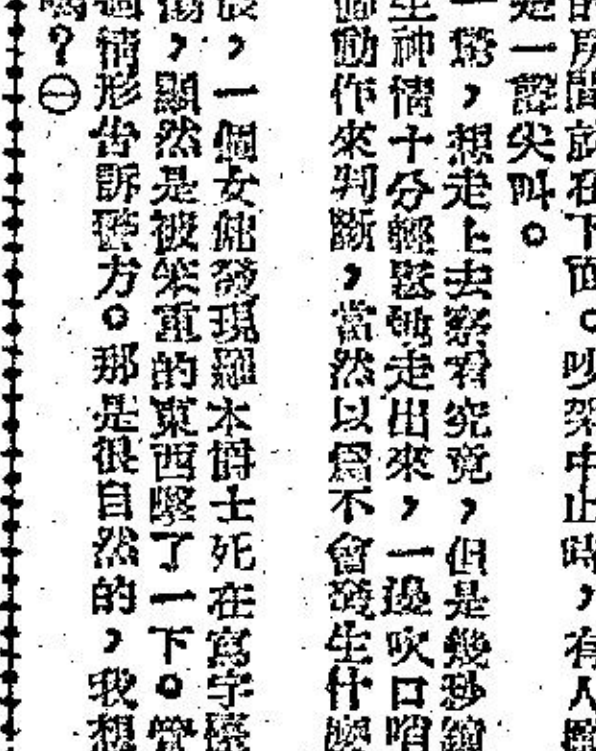 的房間就在下面。吵架中止時，有人
是一聲尖叫。
一驚，想走上去察看究竟，但是幾秒鐘
生神情十分輕鬆地走出來，一邊吹口哨
動作來判斷，當然以爲不會發生什麼
晨，一個女傭發現羅木爵士死在寫字檯
傷，顯然是被笨重的東西擊了一下。管
個情形告訴警方。那是很自然的，我想
嗎？㊀